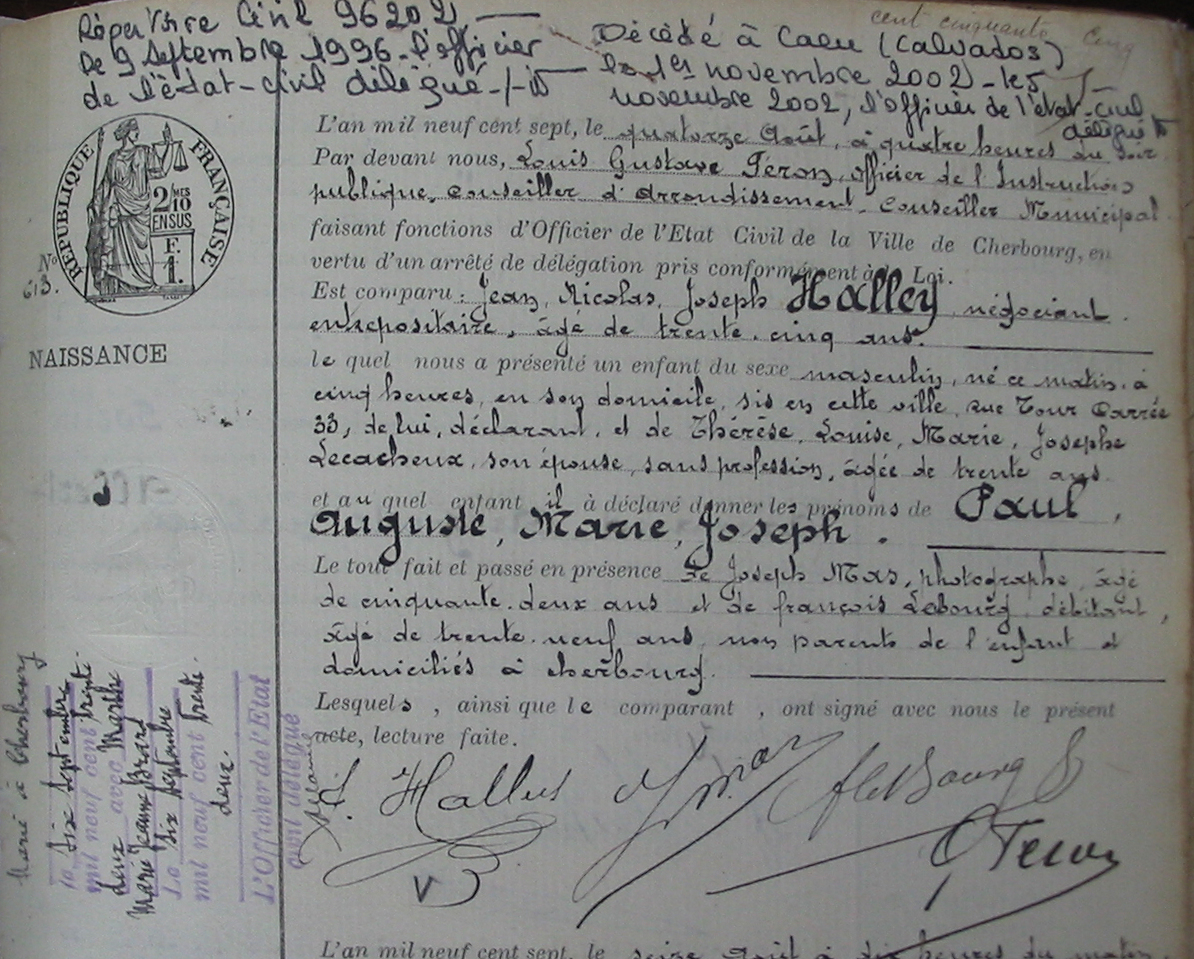 Répertoire Civil 96202
De 9 Septembre 1996. l'officier
de l'état-civil délégué
cent cinquante cinq
Décédé à Caen (Calvados)
le 1er novembre 2002 - le 5
novembre 2002, l'officier de l'état-civil
délégué
RÉPUBLIQUE FRANÇAISE
2 MES
10
EN SUS
F.
1.
No
613.
NAISSANCE
L'an mil neuf cent sept, le quatorze Août, à quatre heures du soir
Par devant nous, Louis Gustave Feron, officier de l'Instruction
publique, Conseiller d'Arrondissement, Conseiller Municipal
faisant fonctions d'Officier de l'Etat Civil de la Ville de Cherbourg, en
vertu d'un arrêté de délégation pris conformément à la Loi.
Est comparu : Jean, Nicolas, Joseph Halley négociant
entrepositaire, âgé de trente-cinq ans.
lequel nous a présenté un enfant du sexe masculin, né ce matin à
cinq heures, en son domicile, sis en cette ville, rue Tour Carrée
33, de lui, déclarant, et de Thérèse, Louise, Marie, Josephe
Lecacheux, son épouse, sans profession, âgée de trente ans
et auquel enfant il à déclaré donner les prénoms de Paul,
Auguste, Marie, Joseph.
Le tout fait et passé en présence de Joseph Mas, photographe, âgé
de cinquante-deux ans et de françois Lebourg, débitant,
âgé de trente-neuf ans, non parents de l'enfant et
domiciliés à Cherbourg.
Lesquels, ainsi que le comparant, ont signé avec nous le présent
acte, lecture faite.
J. Halley J. Mas f. leBourg
G Feron
Marié à Cherbourg
le six septembre
mil neuf cent trente-
deux avec Marthe
Marie Jeanne Brard
Le six septembre
mil neuf cent trente-
deux.
L'Officier de l'Etat
civil délégué
L'an mil neuf cent sept, le seize Août à dix heures du matin,